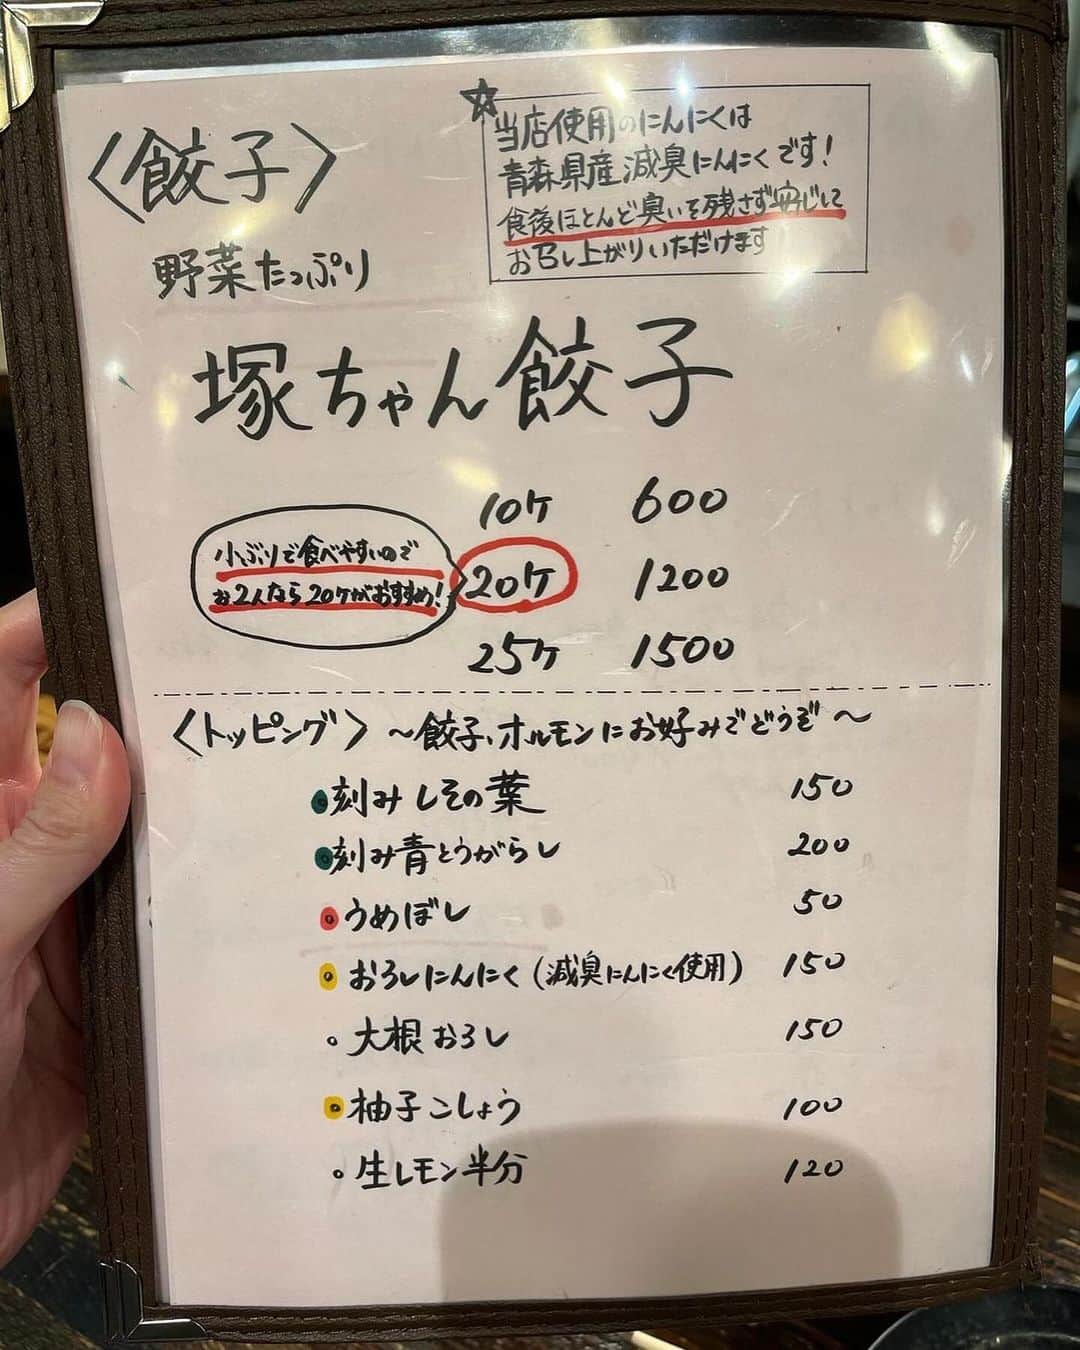 〈餃子〉
☆当店使用のにんにくは
青森県産減臭にんにくです!
食後ほとんど臭いを残さず安心して
お召し上がりいただけます
野菜たっぷり
塚ちゃん餃子
10ヶ 600
小ぶりで食べやすいので
お2人なら20ヶがおすすめ!
20ヶ 1200
25ヶ 1500
〈トッピング〉 ~餃子、ホルモンにお好みでどうぞ~
刻みしその葉 150
刻み青とうがらし 200
うめぼし 50
おろしにんにく(減臭にんにく使用) 150
大根おろし 150
柚子こしょう 100
生レモン半分 120